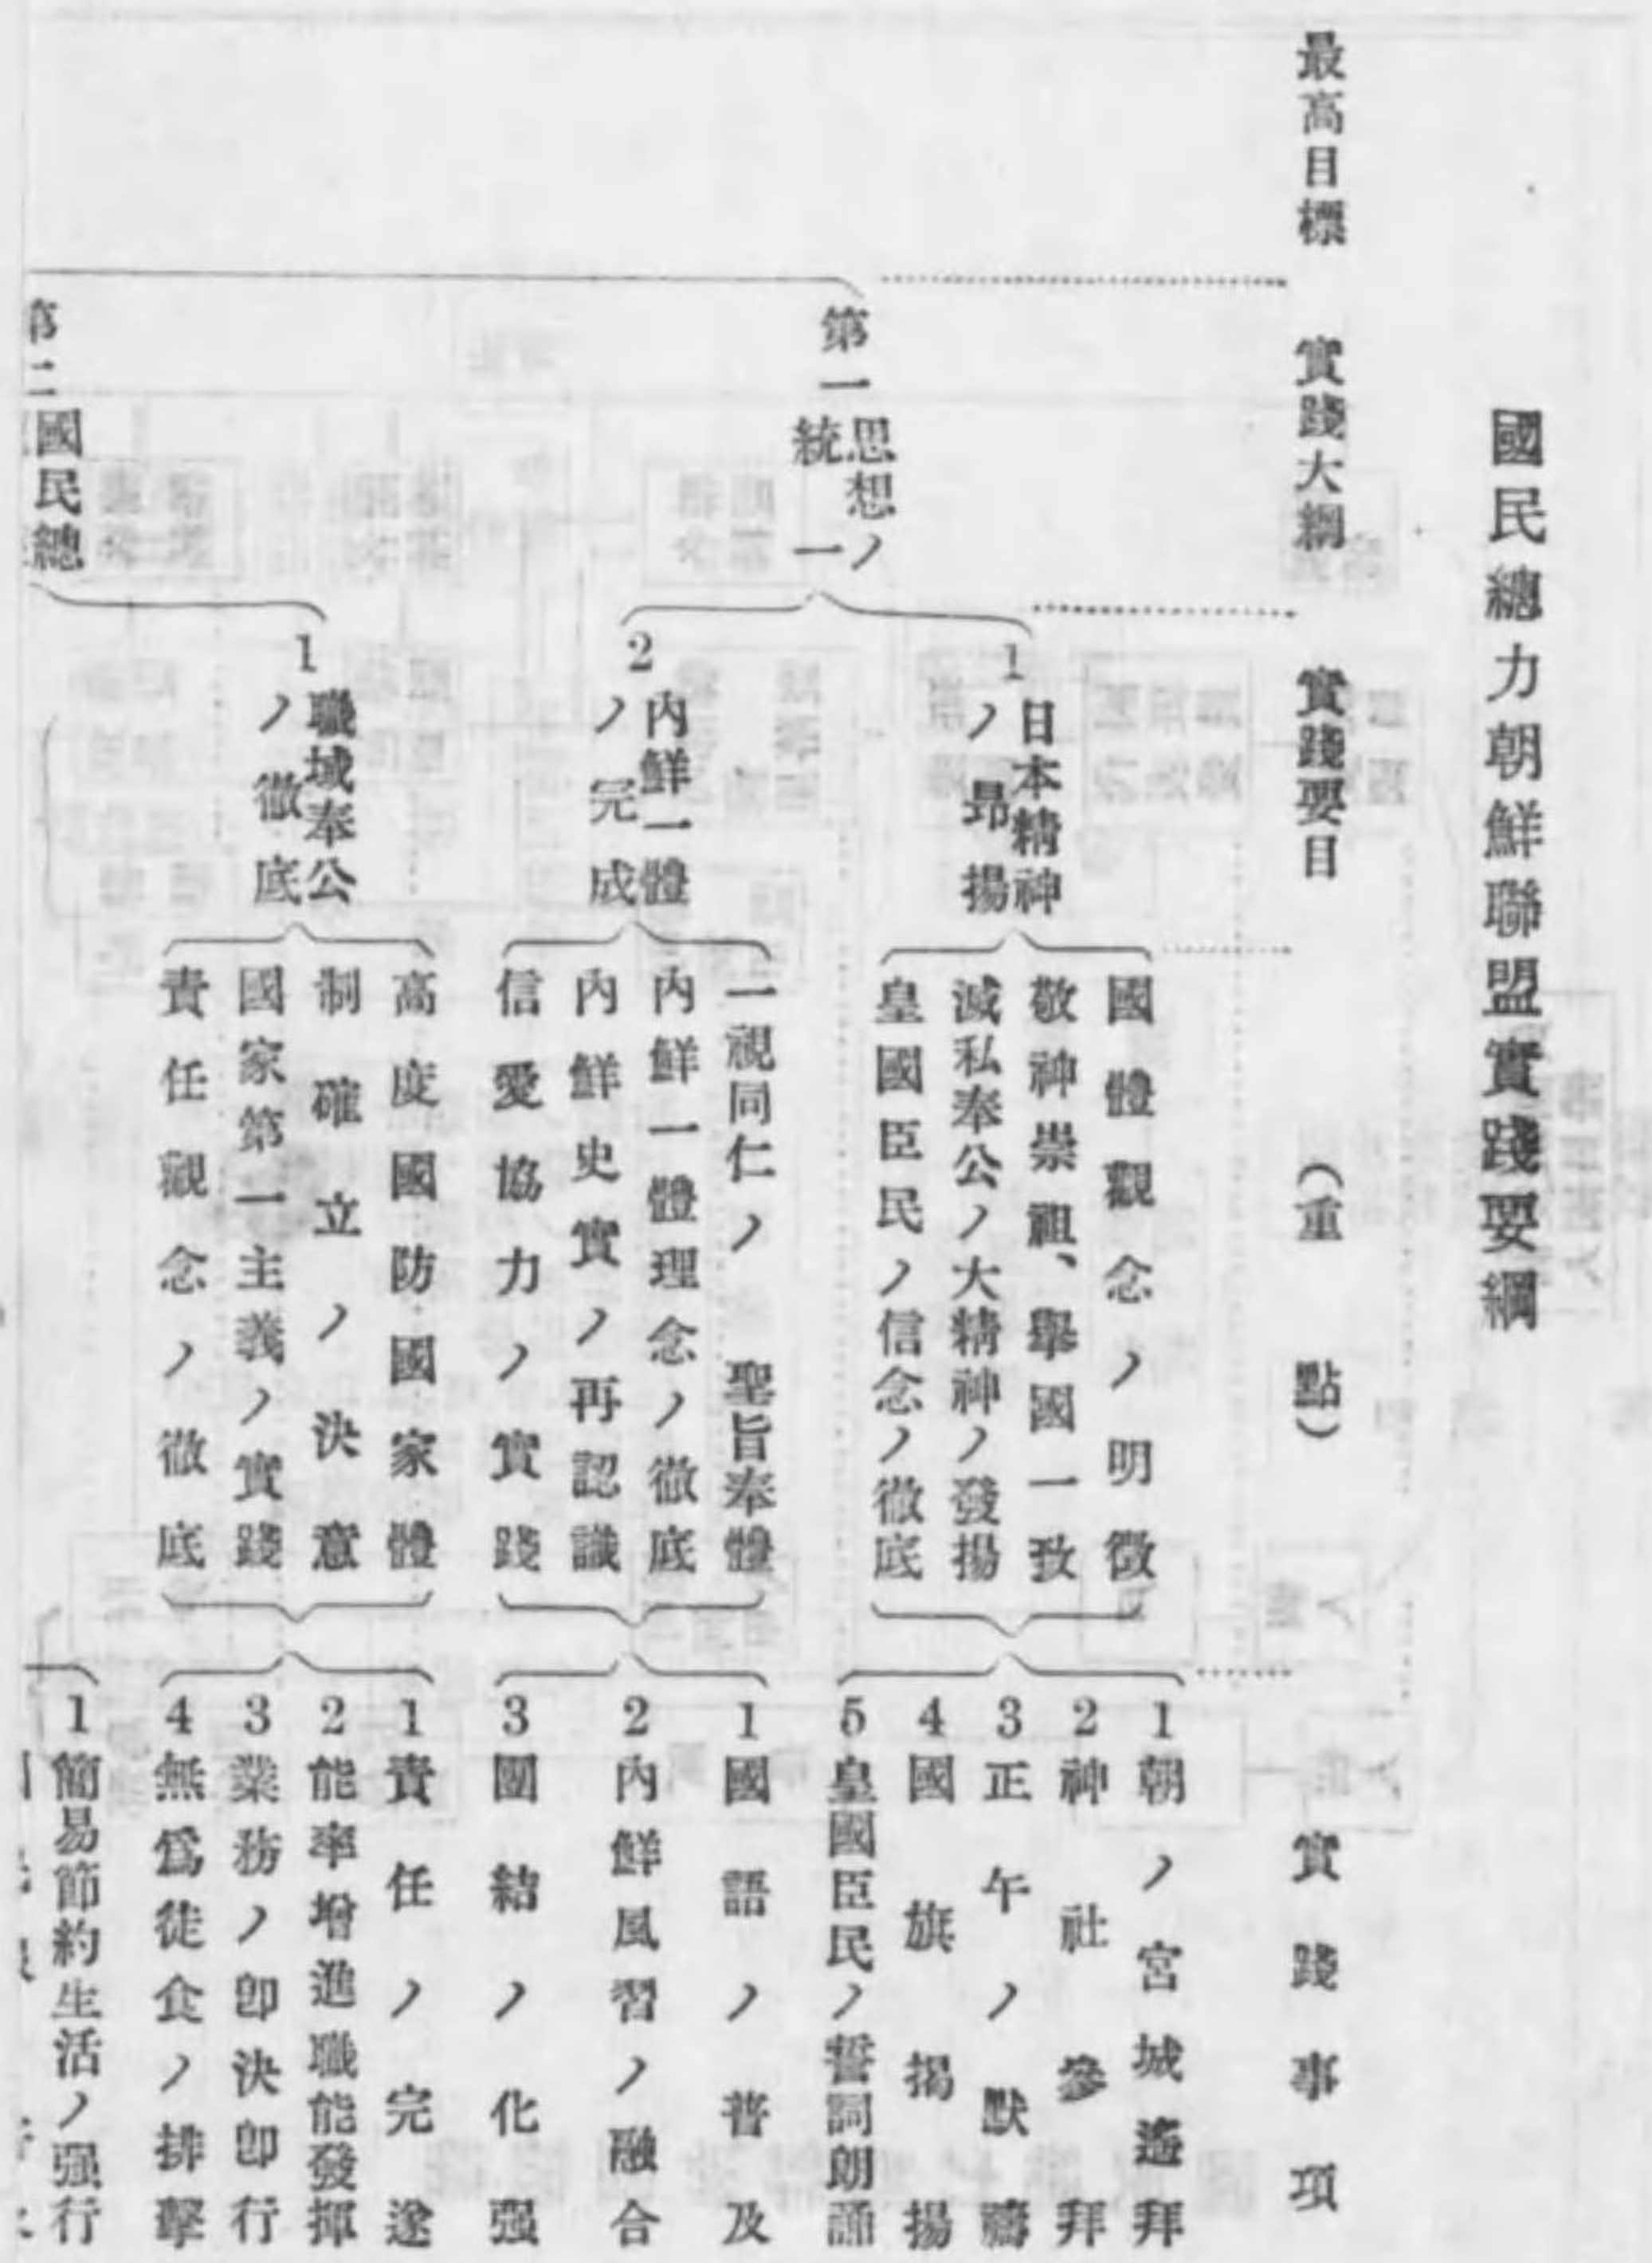 國民總力朝鮮聯盟實踐要綱
最高目標
實踐大綱
實踐要目
(重點)
實踐事項
第一
思想ノ
統一
1
日本精神
ノ昂揚
國體觀念ノ明徵
敬神崇祖、擧國一致
滅私奉公ノ大精神ノ發揚
皇國臣民ノ信念ノ徹底
1朝ノ宮城遙拜
2神社參拜
3正午ノ默禱
4國旗揭揚
5皇國臣民ノ誓詞朗誦
2
內鮮一體
ノ完成
一視同仁ノ聖旨奉體
內鮮一體理念ノ徹底
內鮮史實ノ再認識
信愛協力ノ實踐
1國語ノ普及
2內鮮風習ノ融合
3團結ノ化强
第二
國民總
1
職域奉公
ノ徹底
高度國防國家體
制確立ノ決意
國家第一主義ノ實踐
責任觀念ノ徹底
1責任ノ完遂
2能率增進職能發揮
3業務ノ卽決卽行
4無爲徒食ノ排擊
1簡易節約生活ノ强行